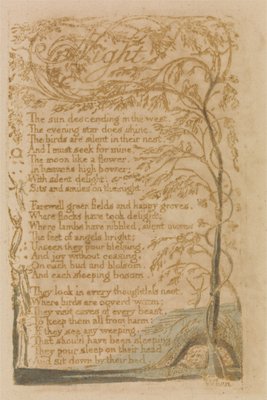 Night
The sun descending in the west.
The evening star does shine.
The birds are silent in their nest.
And I must seek for mine
The moon like a flower.
In heavens high bower;
With silent delight,
Sits and smiles on the night.
Farewell green fields and happy groves,
Where flocks have took delight;
Where lambs have nibbled, silent moves
The feet of angels bright;
Unseen they pour blessing,
And joy without ceasing,
On each bud and blossom,
And each sleeping bosom.
They look in every thoughtless nest
Where birds are coverd warm;
They visit caves of every beast,
To keep them all from harm:
If they see any weeping,
That should have been sleeping
They pour sleep on their head
And sit down by their bed.
When